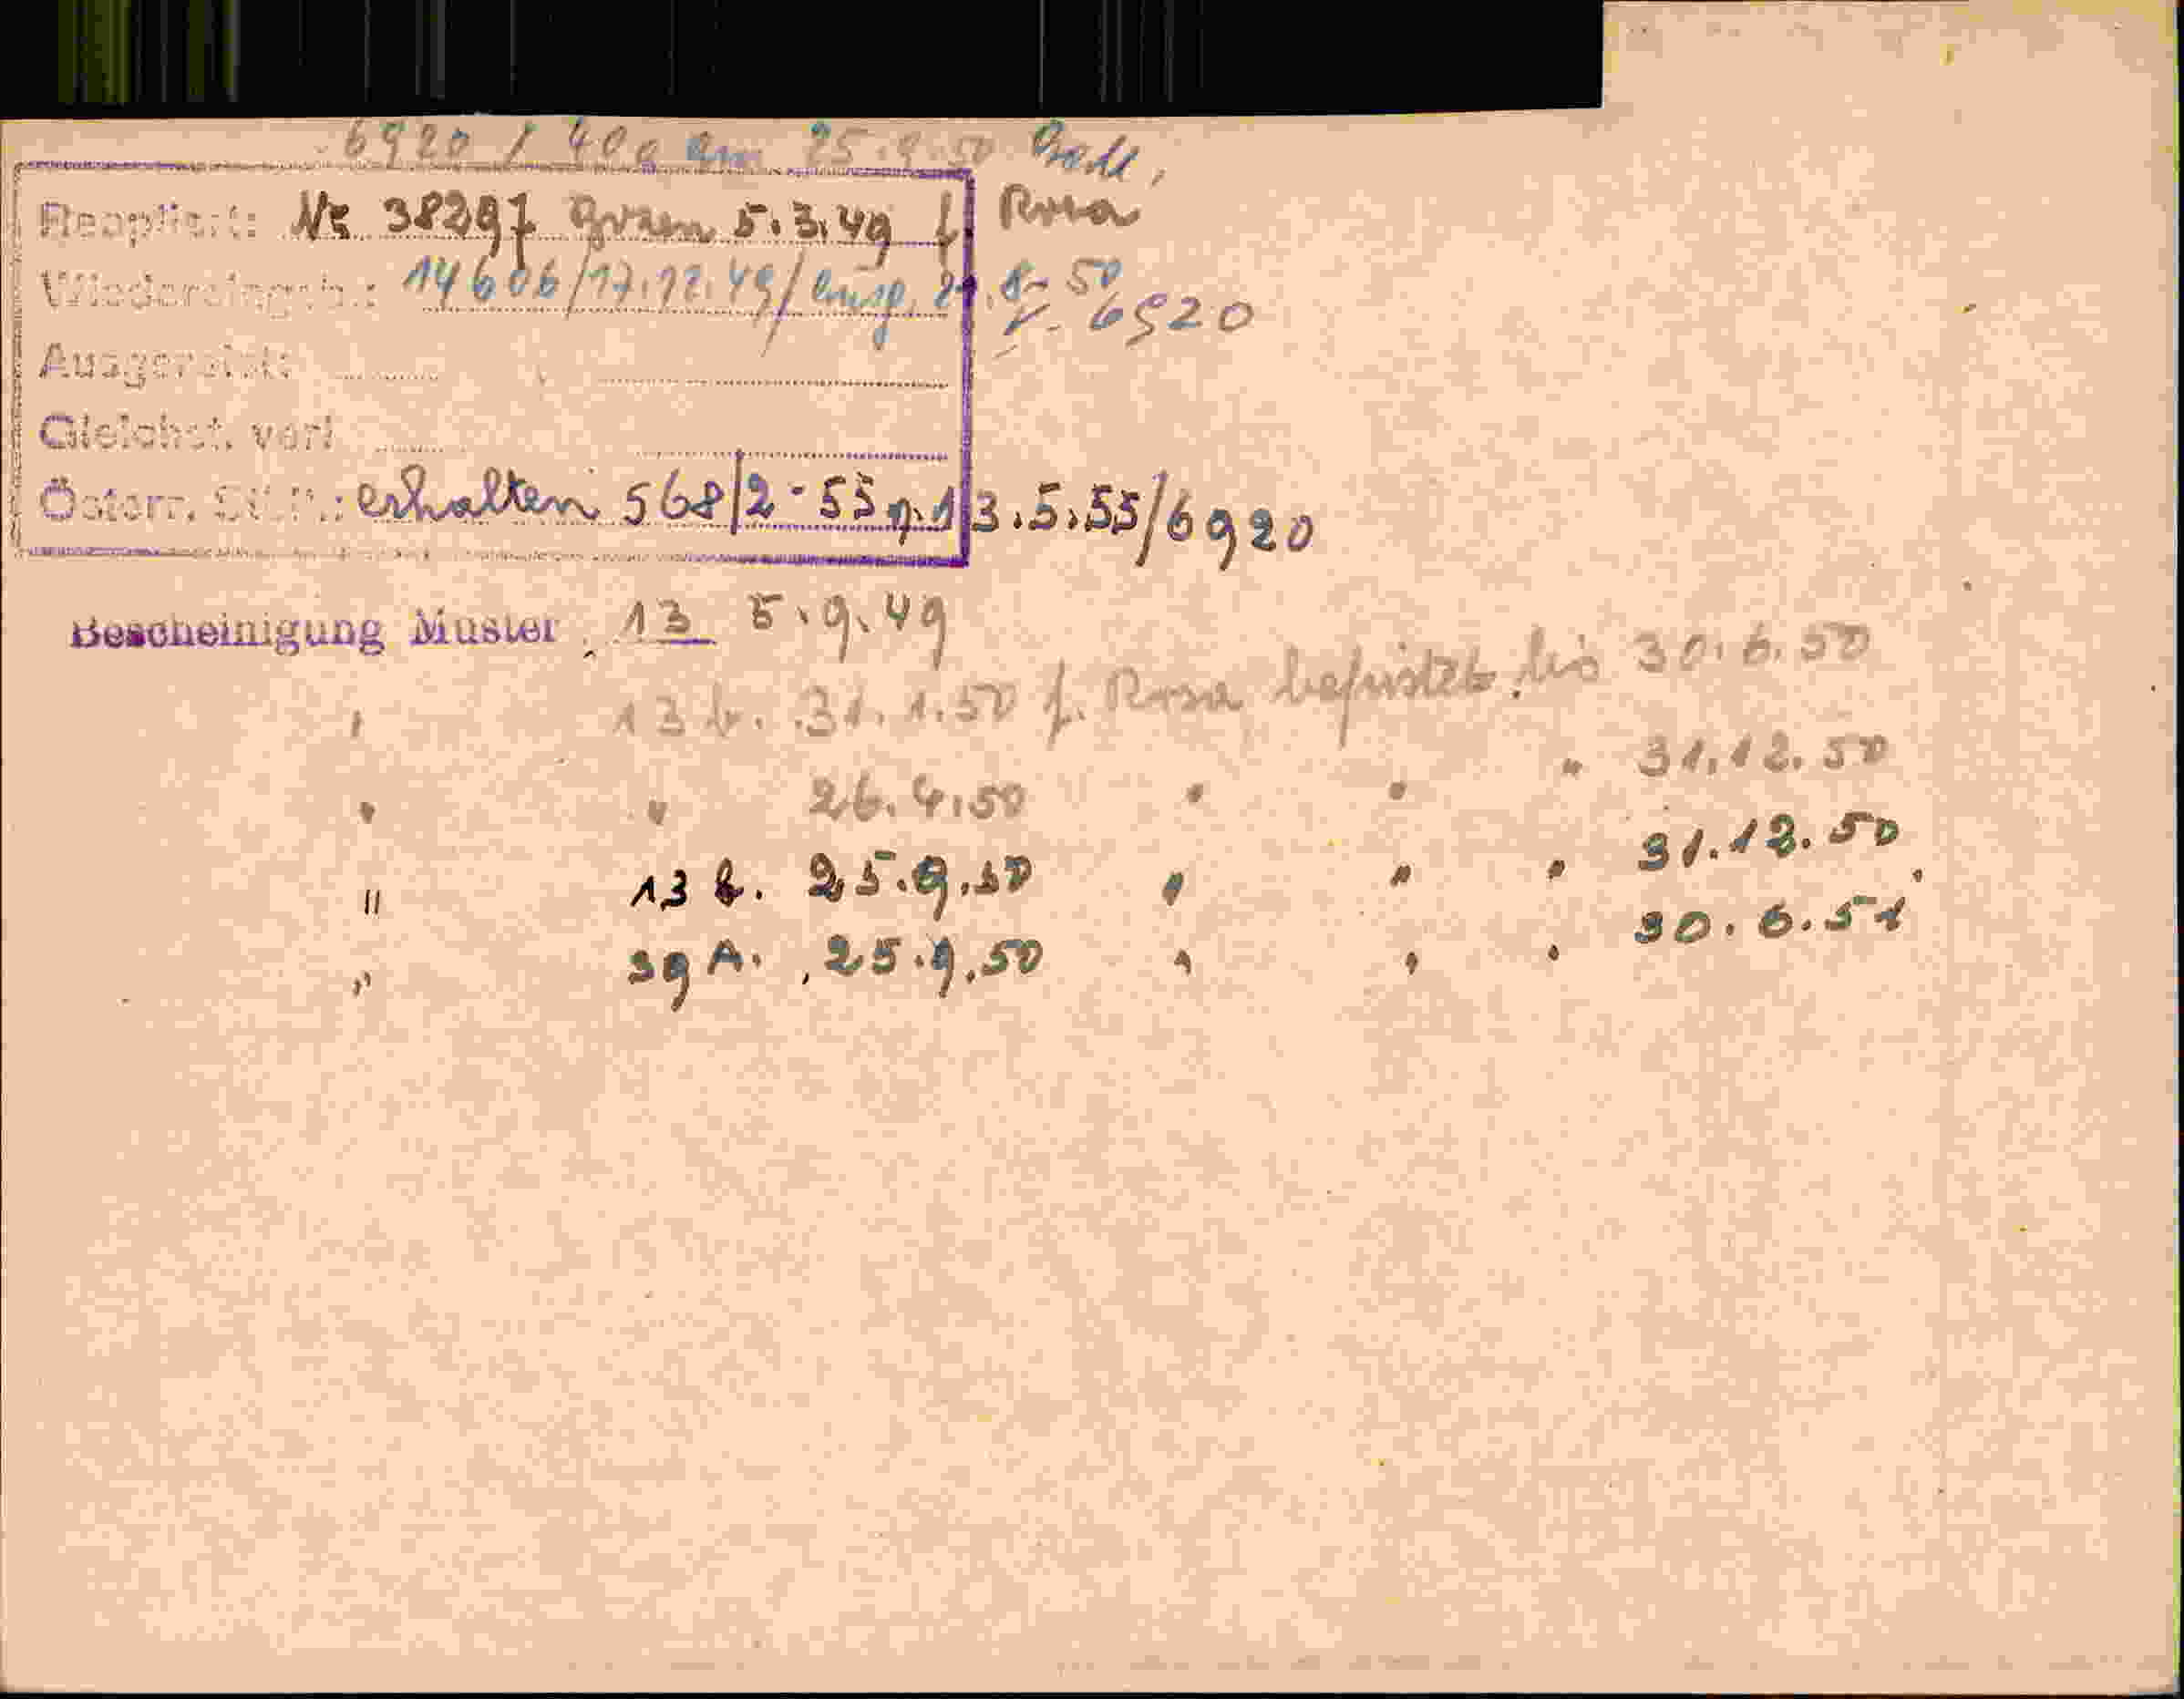 6920 / 40a am 25.9.50
Reoptiert: Nr 38297 Bozen 5.3.49 f. Rosa
Wiedereingeb.: 14606/17.12.49/ 21.8.50
6920
Ausgereist:
Gleichst. verl
Österr. St.B.: erhalten 568/2-55 13.5.55/6920
Bescheinigung Muster 13 5.9.49
" 13 b. 31.1.50 f. Rosa befristet bis 30.6.50
" " 26.4.50 " " " 31.12.50
" 13 b. 25.9.50 " " " 31.12.50
" 39 A. 25.9.50 " " " 30.6.51